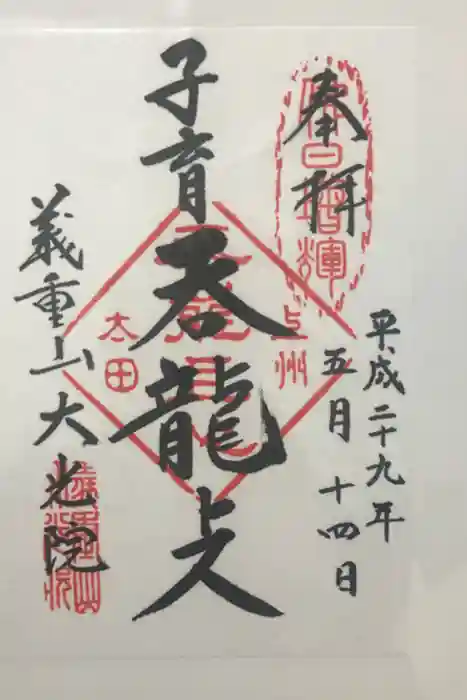 奉拝
平成二十九年
五月十四日
子育呑龍上人
上州
太田
義重山大光院